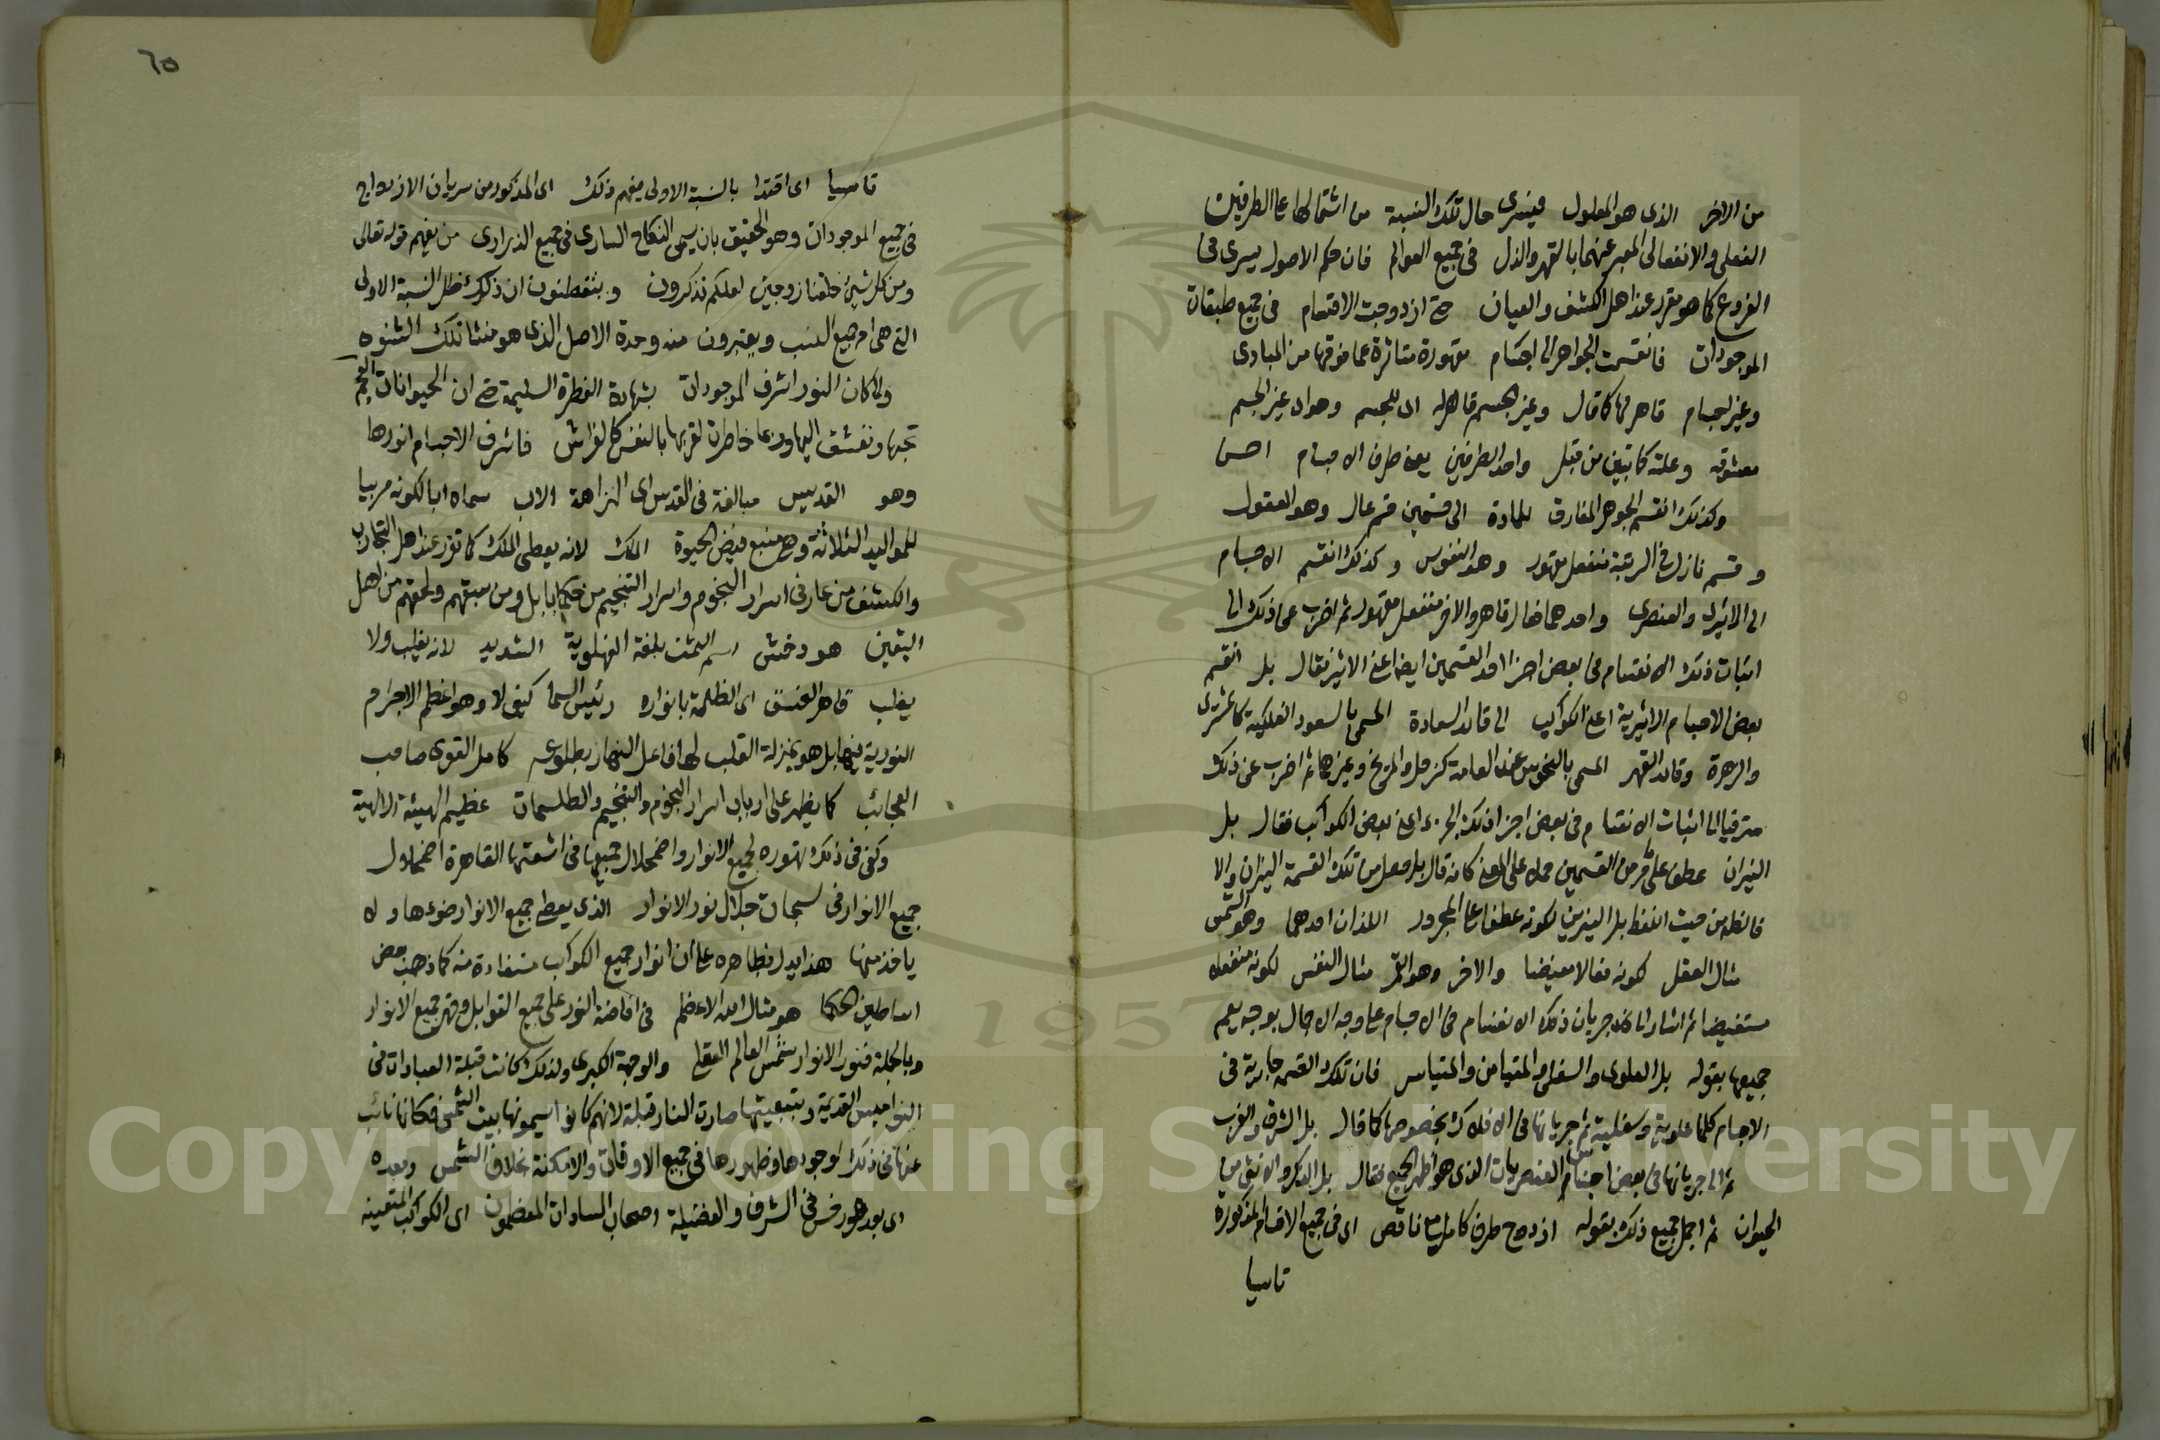 من الاخر الذى هو المعلول فيسرى حال تلك النسبة من اشتمالها على الطرفين
الفعلى والانفعالى المعبر عنهما بالقهر والذل فى جميع العوالم فان حكم الاصول يسرى فى
الفروع كما هو مقرر عند اهل الكشف والعيان حتى ازدوجت الاقسام فى جميع طبقات
الموجودات فانقسمت الجواهر الى اجسام مقهورة متاثرة عما فوقها من المبادى
وغير اجسام قاهر لها كما قال وغير الجسم قاهر له اى للجسم وهو اى غير الجسم
معشوقه وعلته كما تبين من قبل واحد الطرفين يعنى طرف الاجسام اخس
وكذلك انقسم الجوهر المفارق للمادة الى قسمين قسم عال وهو العقول
وقسم نازل فى الرتبة منفعل مقهور وهو النفوس وكذلك انقسم الاجسام
الى الاثيرى والعنصرى واحدهما فعال قاهر والاخر منفعل مقهور ثم اضرب عن ذلك الى
اثبات ذلك الانقسام فى بعض اجزا احد القسمين ايضا اعنى الاثير فقال بل انقسم
بعض الاجسام الاثيرية اعنى الكواكب الى قائد السعادة المسمى بالسعود الفلكية كالمشترى
والزهرة وقائد القهر المسمى بالنحوس عند العامة كزحل والمريخ وغيرهما ثم اضرب عن ذلك
مترقيا الى اثبات الانقسام فى بعض اجزا ذلك الجزء اعنى بعض الكواكب فقال بل
النيران عطف على من القسمين حمله على المعنى كانه قال بل حصل من تلك القسمة النيران والا
فالظ من حيث اللفظ بل النيرين لكونه عطفا على المجرور اللذان احدهما وهو الشمس
مثال العقل لكونه فعالا مفيضا والاخر وهو القمر مثال النفس لكونه منفعلا
مستفيضا ثم اشار الى جريان ذلك الانقسام فى الاجسام على وجه الاجمال بوجه يعم
جميعها بقوله بل العلوى والسفلى والمتيامن والمتياسر فان تلك القسمة جارية فى
الاجسام كلها علوية وسفلية ثم جريانها فى الافلاك بخصوصها كما قال بل الشرق والغرب
ثم الى جريانها فى بعض اجسام العنصريات الذى هو اظهر الجميع فقال بل الذكر والانثى من
الحيوان ثم اجمل جميع ذلك بقوله ازدوج طرف كامل مع ناقص اى فى جميع الاقسام المذكورة
تاسيا
٦٥
تاسيا اى اقتدا بالنسبة الاولى يفهم ذلك اى المذكور من سريان الازدواج
فى جميع الموجودات وهو الحقيق بان يسمى النكاح السارى فى جميع الذرارى من يفهم قوله تعالى
ومن كل شيئ خلقنا زوجين لعلكم تذكرون ويتفطنون ان ذلك ظل النسبة الاولى
التى هى ام جميع النسب ويعتبرون منه وحدة الاصل الذى هو منشا تلك الشنوه
ولما كان النور اشرف الموجودات بشهادة الفطرة السليمة حتى ان الحيوانات العجم
تحبها وتعشق اليها وربما خاطرت لقربها بالنفس كالفراش فاشرف الاجسام انورها
وهو القديس مبالغة فى القدس اى النزاهة الاب سماه ابا لكونه مربيا
للمواليد الثلاثة وهى منبع فيض الحيوة الملك لانه يعطى الملك كما تقرر عند اهل التجارب
والكشف من عارفى اسرار النجوم واسرار التنجيم من حكما بابل ومن سبقهم ولحقهم من اهل
اليقين هورخش اسم الشمس بلغة الفهلوية الشديد لانه يغلب ولا
يغلب قاهر الغسق اى الظلمة بانواره رئيس السما كيف لا وهو اعظم الاجرام
النورية فيها بل هو بمنزلة القلب لها فاعل النهار بطلوعه كامل القوى صاحب
العجائب كما يظهر على ارباب اسرار النجوم والتنجيم والطلسمات عظيم الهيئة الالهية
وكفى فى ذلك قهوره لجميع الانوار واضمحلال جميعها فى اشعتها القاهرة اضمحلال
جميع الانوار فى سبحات جلال نور الانوار الذى يعطى جميع الانوار ضوءها ولا
ياخذ منها هذا يدل بظاهره على ان انوار جميع الكواكب مستفادة منه كما ذهب بعض
اساطين الحكما هو مثال الله الاعظم فى افاضة النور على جميع القوابل وقهر جميع الانوار
وبالجملة فنور الانوار شمس العالم العقلى والوجهة الكبرى ولذلك كانت قبلة العبادات فى
النواميس القديمة وبتبعيتها صارت النار قبلة لانهم كانوا يسمونها بيت الشمس فكانها نائب
عنها فى ذلك لوجودها وظهورها فى جميع الاوقات والامكنة بخلاف الشمس وبعده
اى بعد هورخش فى الشرف والفضيلة اصحاب السادات المعظمون اى الكواكب المتعينة